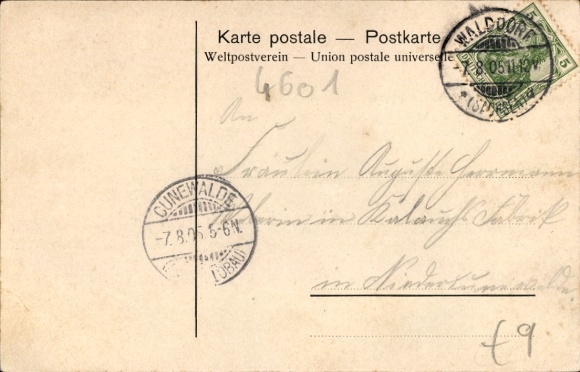 Karte postale — Postkarte
Weltpostverein — Union postale universelle
4601
WALDDORF
7.8.05.11-12V.
5
5
An
Fräulein Auguste Herrmann
in Kalauchs Fabrik
in Niedercunewalde
CUNEWALDE
-7.8.05.5-6N.
(LÖBAU)
£9